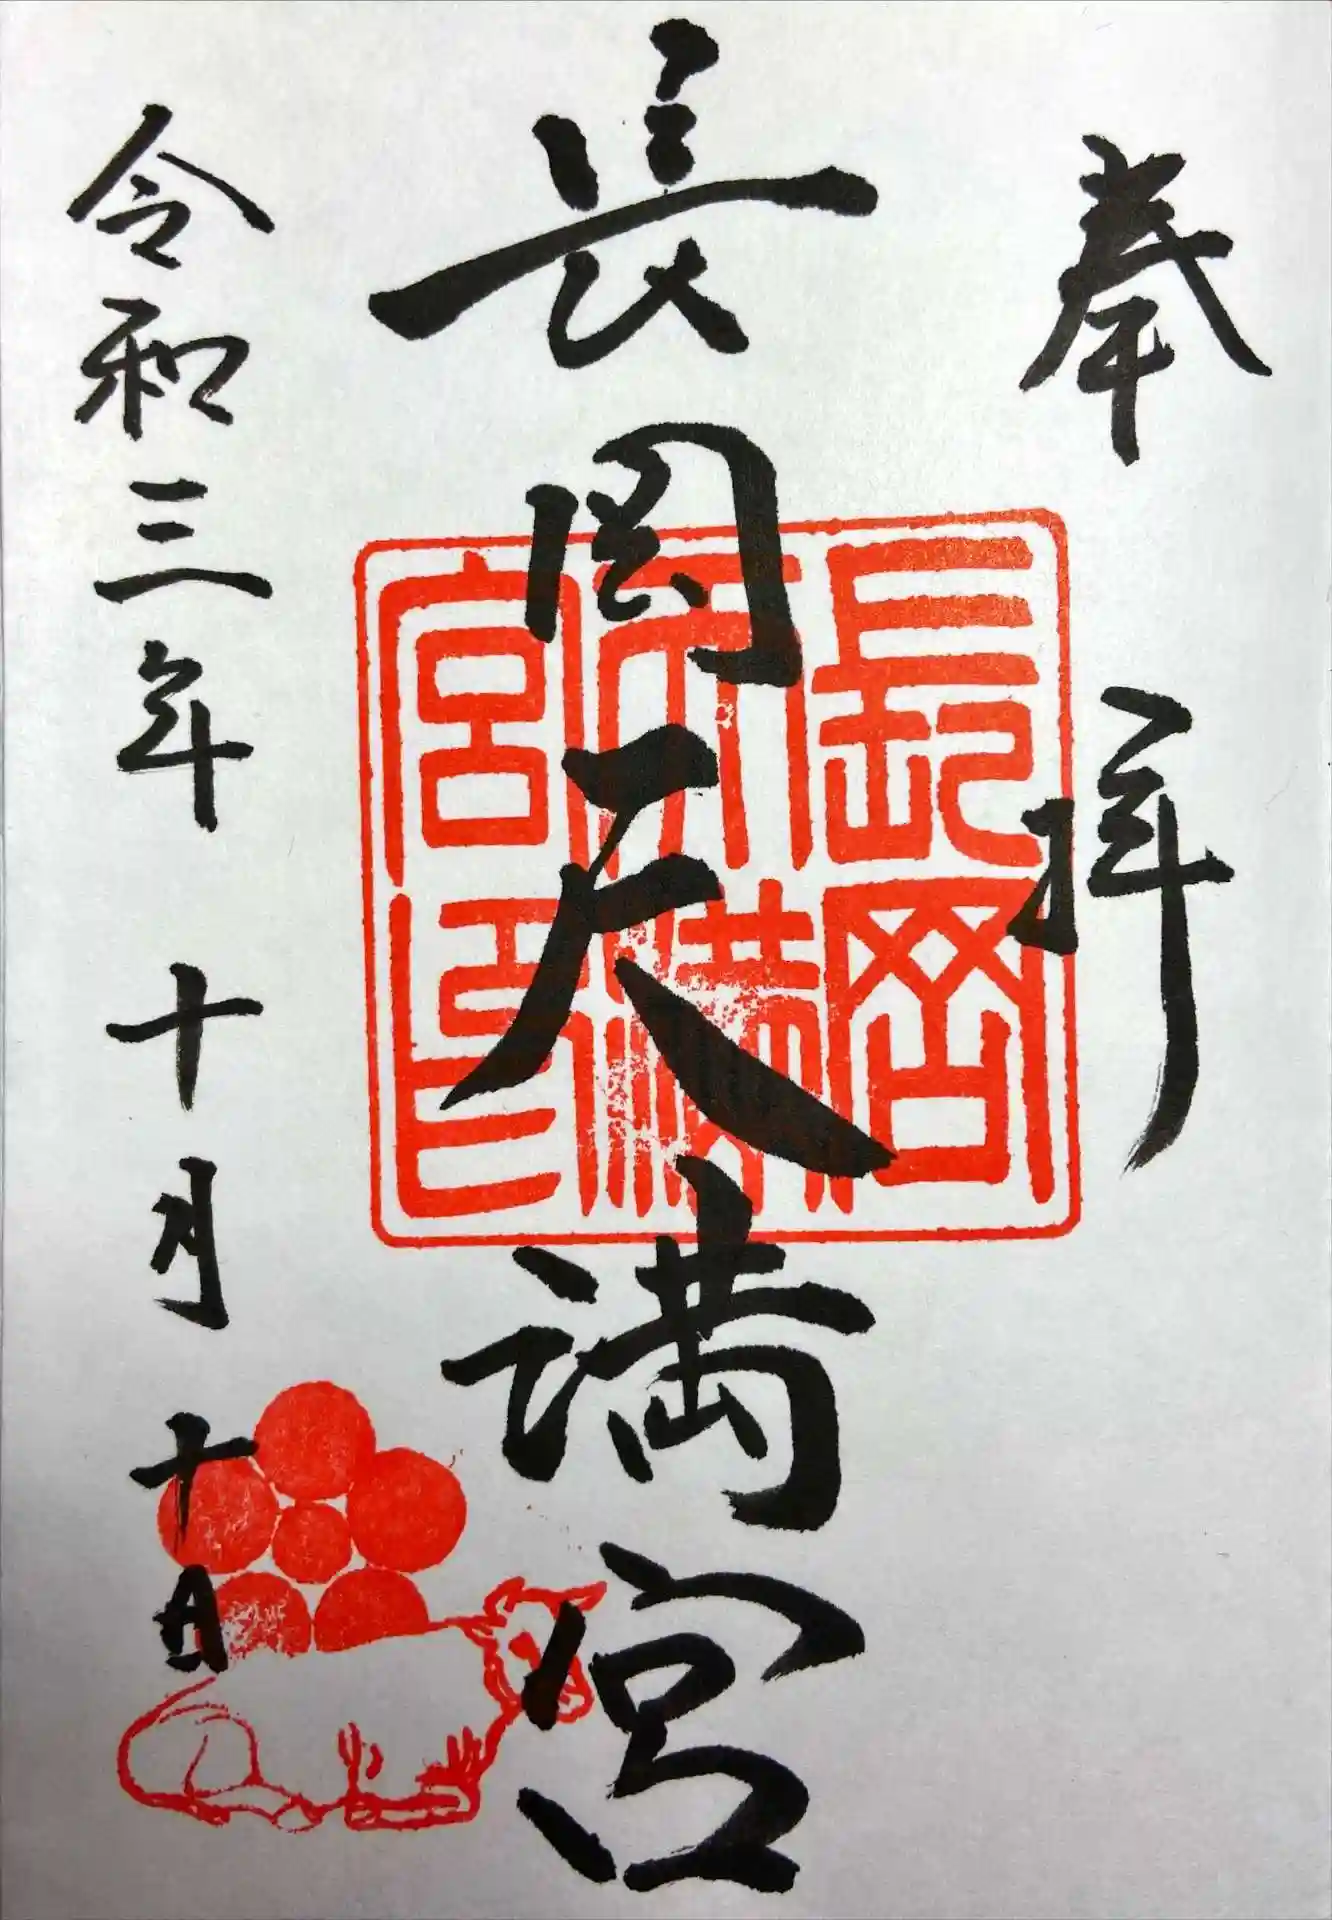 奉拝
長岡天満宮
長岡天満宮印
令和三年十月十日